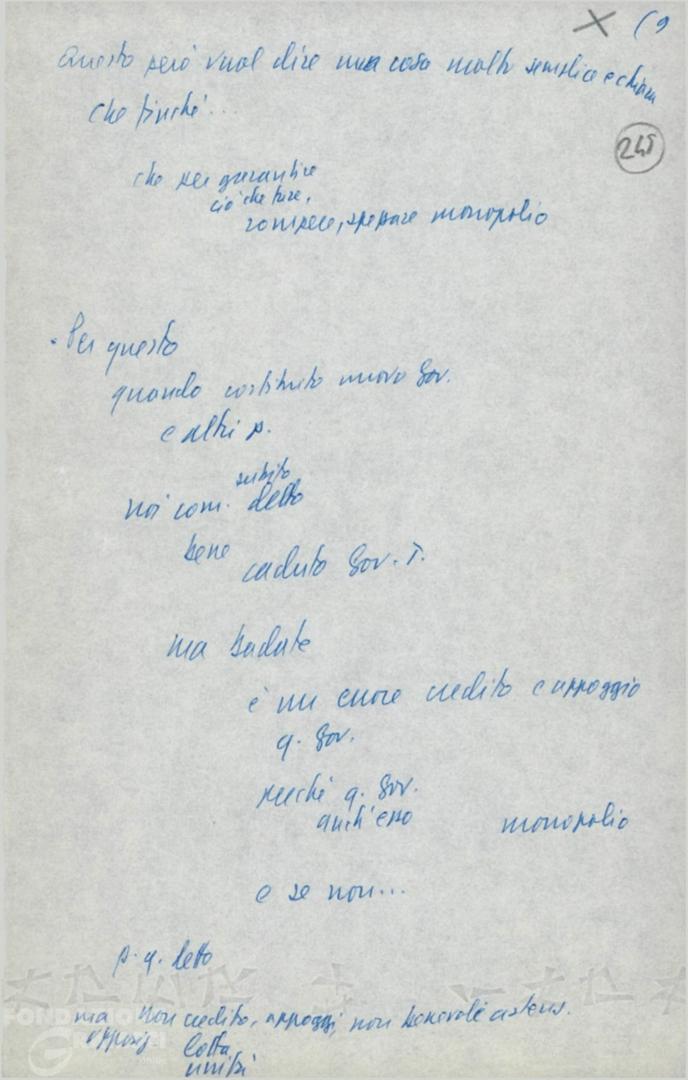 (9
Questo però vuol dire una cosa molto semplice e chiara
che finché...
245
che per garantire
ciò che fare,
rompere, spezzare monopolio
- Per questo
quando costituito nuovo Gov.
e altri p.
subito
noi com. detto
bene
caduto Gov. T.
ma badate
è un errore credito e appoggio
q. Gov.
perché q. Gov.
anch'esso monopolio
e se non...
p. q. detto
ma non credito, appoggi, non benevole astens.
opposiz
lotta
unità
FONDAZIONE
GRAMSCI